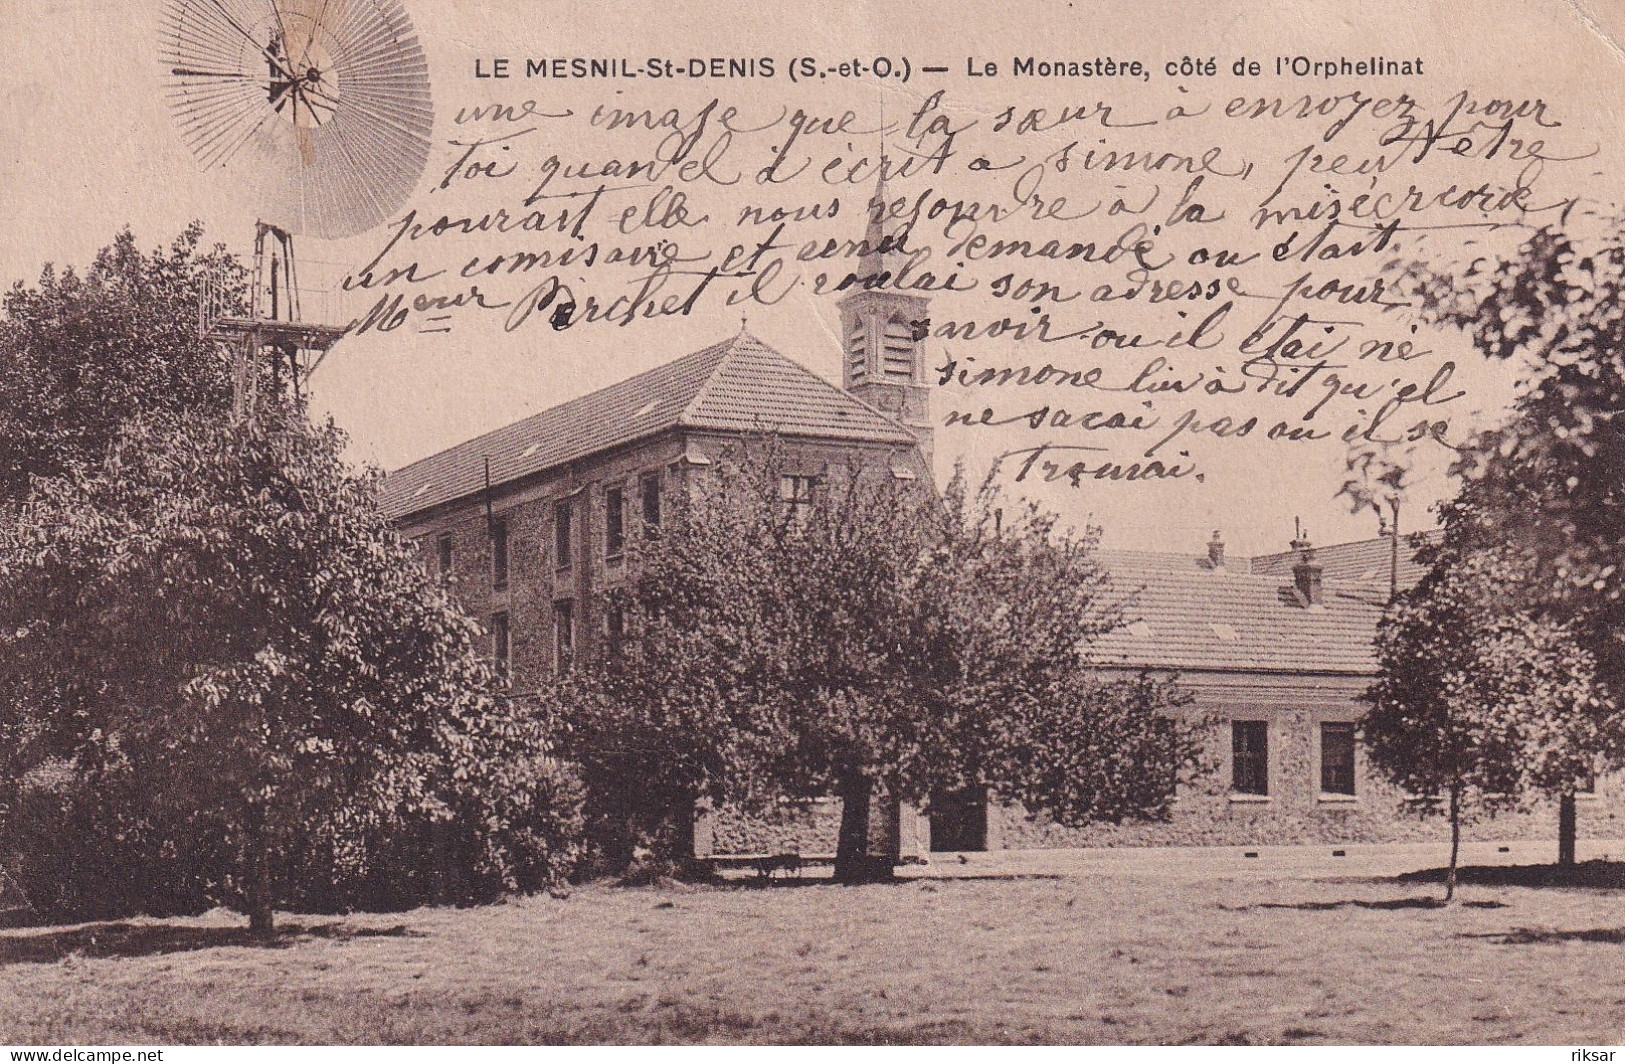 LE MESNIL-St-DENIS (S.-et-O.) — Le Monastère, côté de l'Orphelinat
une image que la sœur à envoyez pour
toi quand el à écrit a simone, peut être
pourait elle nous rejoindre à la miséricorde
un comisaire et venu demandé ou était
Meeur Perchet il voulai son adresse pour
savoir ou il étai né
simone lui à dit qu'el
ne sacai pas ou il se
trouvai.
delcampe.net
riksar